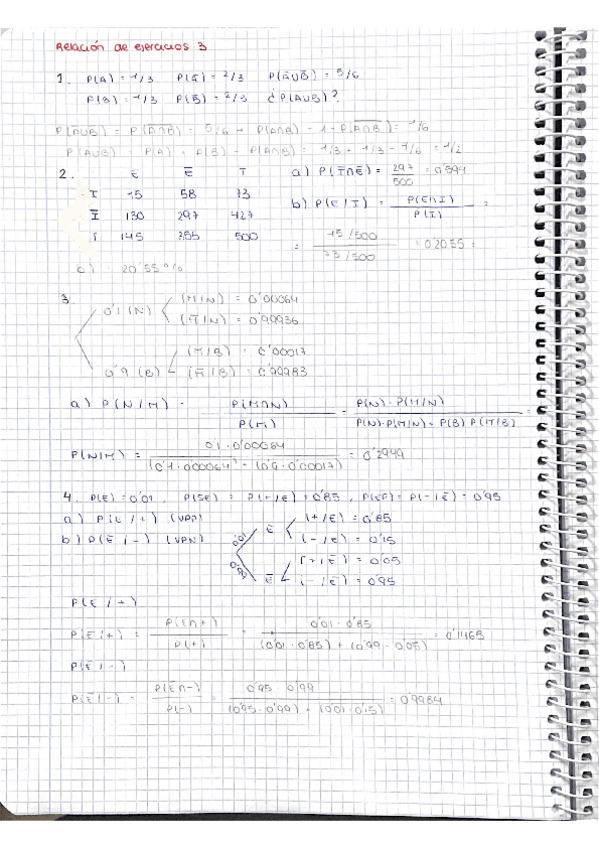 Relación de ejercicios 3
1. P(A) = 1/3 P(A̅) = 2/3 P(A̅∪B̅) = 5/6
P(B) = 1/3 P(B̅) = 2/3 ¿P(A∪B)?
P(A̅∪B̅) = P(A∩B)‾ = 5/6 → P(A∩B) = 1 - P(A∩B)‾ = 1/6
P(A∪B) = P(A) + P(B) - P(A∩B) = 1/3 + 1/3 - 1/6 = 1/2
2. E E̅ T
I 15 58 73
I̅ 130 297 427
T 145 355 500
a) P(I̅∩E̅) = 297/500 = 0'594
b) P(E/I) = P(E∩I)/P(I) =
= 15/500 / 73/500 = 0'2055 =
= 20'55%
3.
0'1 (N) (M/N) = 0'00064
(M̅/N) = 0'99936
0'9 (B) (M/B) = 0'00017
(M̅/B) = 0'99983
a) P(N/M) = P(M∩N)/P(M) = P(N)·P(M/N) / P(N)·P(M/N) + P(B)·P(M/B) =
P(N/M) = 0'1·0'00064 / (0'1·0'00064) + (0'9·0'00017) = 0'2949
4. P(E) = 0'01, P(SE) = P(+/E) = 0'85, P(EP) = P(-/E̅) = 0'95
a) P(E/+) (VPP)
b) P(E̅/-) (VPN)
0'01 E (+/E) = 0'85
(-/E) = 0'15
0'99 E̅ (+/E̅) = 0'05
(-/E̅) = 0'95
P(E/+)
P(E/+) = P(E∩+)/P(+) = 0'01·0'85 / (0'01·0'85) + (0'99·0'05) = 0'1465
P(E̅/-)
P(E̅/-) = P(E̅∩-)/P(-) = 0'95·0'99 / (0'95·0'99) + (0'01·0'15) = 0'9984